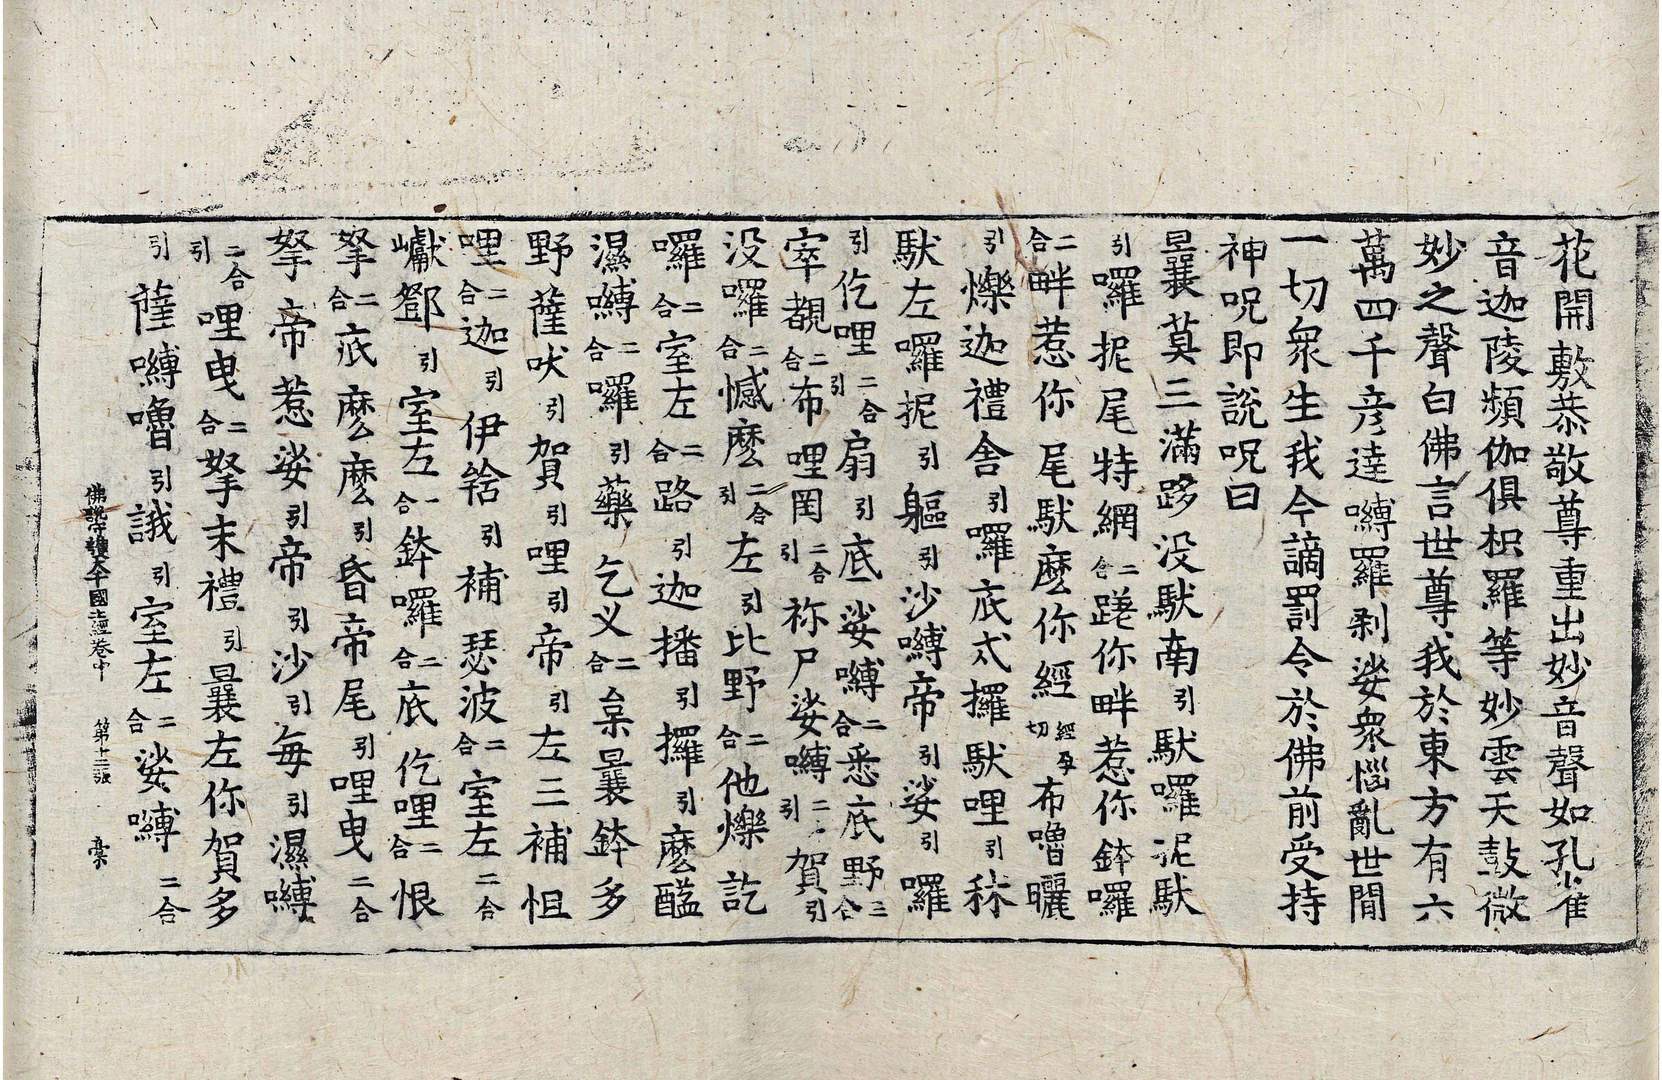 花開敷恭敬尊重出妙音聲如孔雀
音迦陵頻伽俱枳羅等妙雲天鼓微
妙之聲白佛言世尊我於東方有六
萬四千彦達嚩羅剎娑衆惱亂世間
一切衆生我今謫罰令於佛前受持
神呪即說呪曰
曩莫三滿跢没馱南引馱囉抳馱
引囉抳尾特網二合蹉你畔惹你鉢囉
二合畔惹你尾馱麼你經經孕切布嚕曬
引爍迦禮舍引囉底攞馱哩引秫
馱左囉抳引軀引沙嚩帝引娑引囉
引仡哩二合引扇引底娑嚩二合悉底野三合
窣覩二合布哩罔二合引祢尸娑嚩二合引賀引
没囉二合憾麼二合引左引比野二合他爍訖
囉二合室左二合路引迦播引攞引麼醯
濕嚩二合囉引藥乞义二合枲曩鉢多
野薩吠引賀引哩引帝引左三補怛
哩二合迦引伊舍引補瑟波二合室左二合
巘鄧引室左一合鉢囉二合底仡哩二合恨
拏二合底麼麼引昏帝尾引哩曳二合
拏帝惹娑引帝引沙引每引濕嚩
二合引哩曳二合拏末禮引曩左你賀多
引薩嚩嚕引誐引室左二合娑嚩二合
佛說守護大千國土經卷中 第十二張